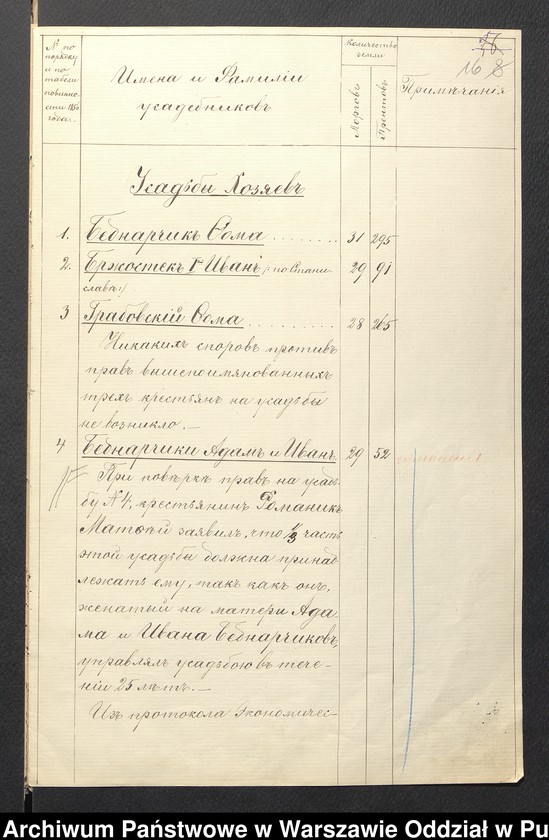 № по
порядку
и по
табели
повинно-
сти 1850
года.
Имена и Фамиліи
усадебниковъ
Количество
земли
Морговъ
Прентовъ
16 8
Примѣчанія
Усадьбы Хозяевъ
1. Беднарчикъ Ѳома ........ 31 295
2. Бржостекъ Иванъ (: по Стани- 29 91
славѣ:)
3 Грабовскій Ѳома .......... 28 265
Никакихъ споровъ противъ
правъ вышепоимянованныхъ
трехъ крестьянъ на усадьбы
не возникло. —
4 Беднарчики Адамъ и Иванъ. 29 52
При повѣркѣ правъ на усадь-
бу № 4, крестьянинъ Романикъ
Матвѣй заявилъ, что 1/3 часть
этой усадьбы должна принад-
лежать ему, такъ какъ онъ,
женатый на матери Ада-
ма и Ивана Беднарчиковъ,
управлялъ усадьбою въ тече-
ніи 25 лѣтъ. —
Изъ протокола Экономичес-
Archiwum Państwowe w Warszawie Oddział w Pu